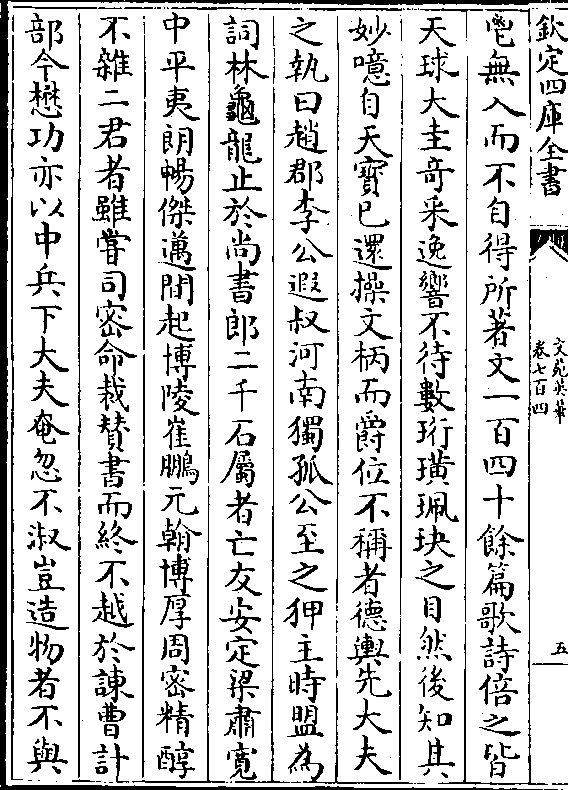 欽定四庫全書
文苑英華
卷七百四
五
鬯無入而不自得所著文一百四十餘篇歌詩倍之皆
天球大圭奇采逸響不待數珩璜珮玦之目然後知其
妙噫自天寳已還操文柄而爵位不稱者德輿先大夫
之執曰趙郡李公遐叔河南獨孤公至之狎主時盟為
詞林龜龍止於尚書郎二千石屬者亡友安定梁肅寛
中平夷朗暢傑邁間起博陵崔鵬元翰博厚周密精醇
不雜二君者雖嘗司密命裁賛書而終不越於諌曹計
部今懋功亦以中兵下大夫奄忽不淑豈造物者不與